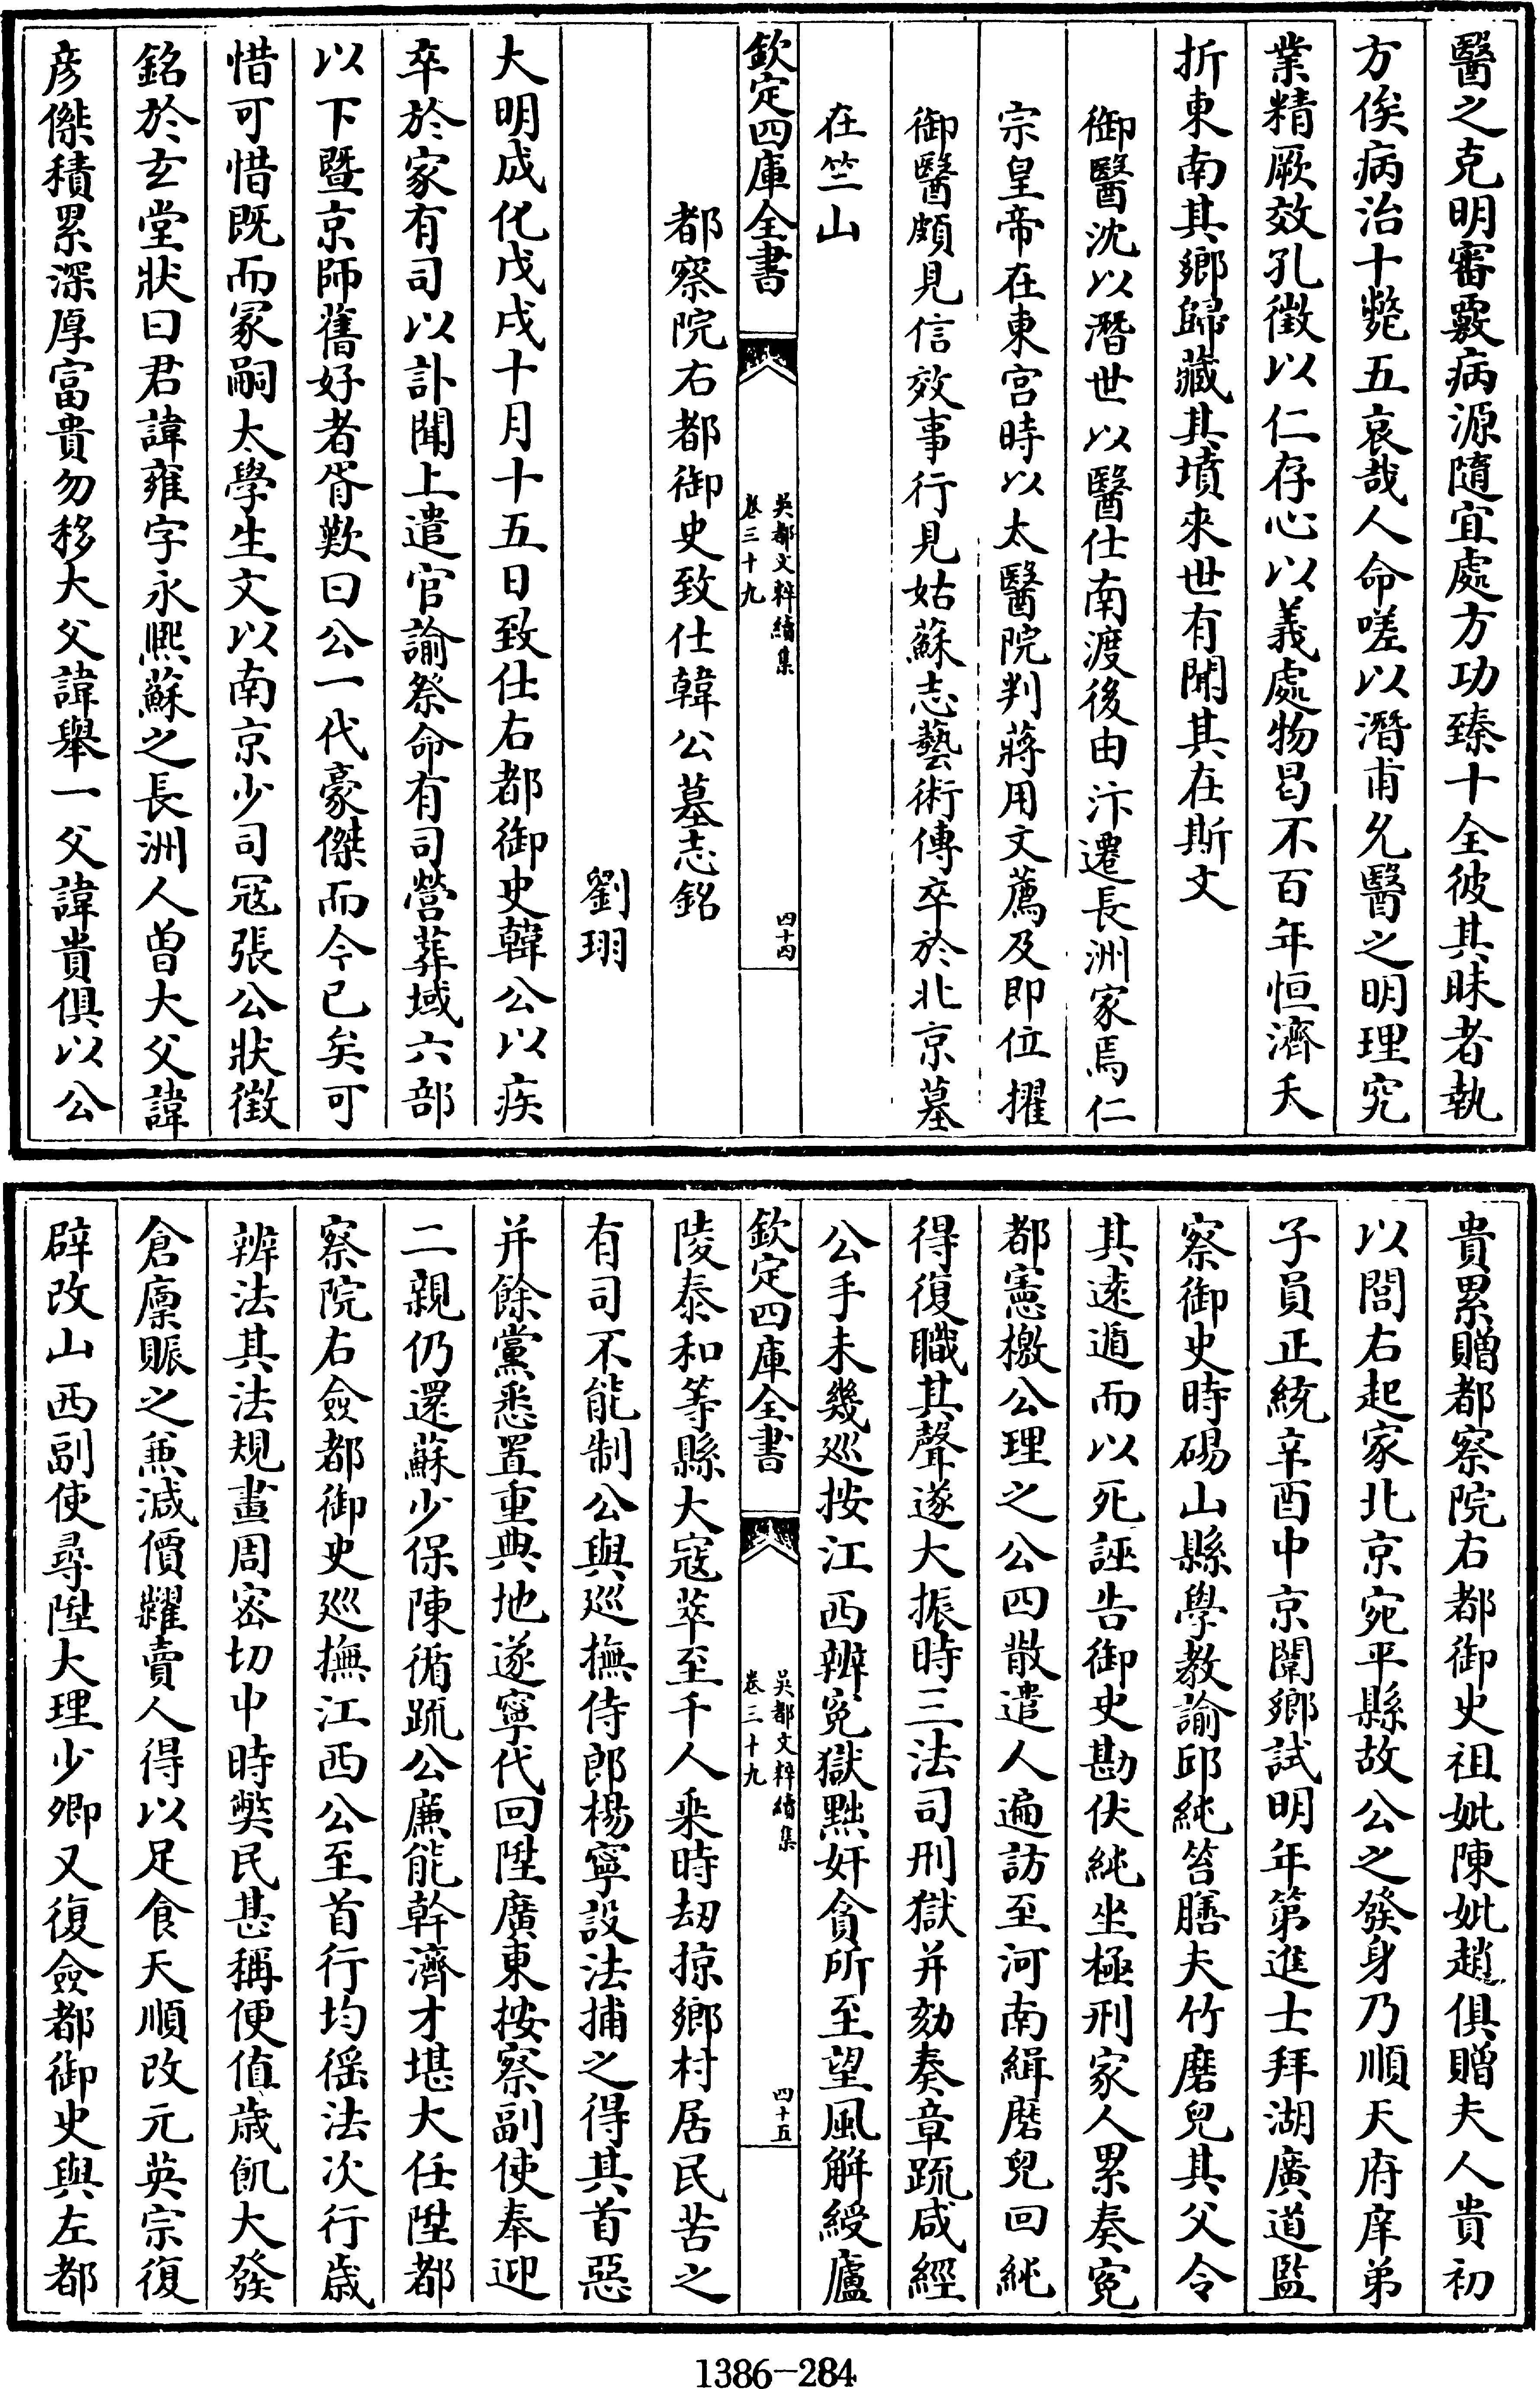 醫之克明審覈病源隨宜處方功臻十全彼其昧者執
方俟病治十斃五哀哉人命嗟以潛甫允醫之明理究
業精厥效孔徵以仁存心以義處物曷不百年恒濟夭
折東南其鄉歸藏其墳來世有聞其在斯文
御醫沈以潛世以醫仕南渡後由汴遷長洲家焉仁
宗皇帝在東宮時以太醫院判蔣用文薦及即位擢
御醫頗見信效事行見姑蘇志藝術傳卒於北京墓
在竺山
欽定四庫全書
吳都文粹續集
卷三十九
四十四
都察院右都御史致仕韓公墓志銘
劉珝
大明成化戊戌十月十五日致仕右都御史韓公以疾
卒於家有司以訃聞上遣官諭祭命有司營葬域六部
以下暨京師舊好者胥歎曰公一代豪傑而今已矣可
惜可惜既而冢嗣太學生文以南京少司寇張公狀徵
銘於玄堂狀曰君諱雍字永熙蘇之長洲人曾大父諱
彥傑積累深厚富貴勿移大父諱舉一父諱貴俱以公
貴累贈都察院右都御史祖妣陳妣趙俱贈夫人貴初
以閭右起家北京宛平縣故公之發身乃順天府庠弟
子員正統辛酉中京闈鄉試明年第進士拜湖廣道監
察御史時碭山縣學教諭邱純笞膳夫竹磨兒其父令
其遠遁而以死誣告御史勘伏純坐極刑家人累奏冤
都憲檄公理之公四散遣人遍訪至河南緝磨兒回純
得復職其聲遂大振時三法司刑獄并劾奏章疏咸經
公手未幾巡按江西辨冤獄黜奸貪所至望風解綬廬
欽定四庫全書
吳都文粹續集
卷三十九
四十五
陵泰和等縣大寇萃至千人乗時劫掠鄉村居民苦之
有司不能制公與巡撫侍郎楊寧設法捕之得其首惡
并餘黨悉置重典地遂寧代回陞廣東按察副使奉迎
二親仍還蘇少保陳循疏公廉能幹濟才堪大任陞都
察院右僉都御史巡撫江西公至首行均徭法次行歲
辨法其法規畫周密切中時獘民甚稱便值歲飢大發
倉廩賑之兼減價糶賣人得以足食天順改元英宗復
辟改山西副使尋陞大理少卿又復僉都御史與左都
1386-284